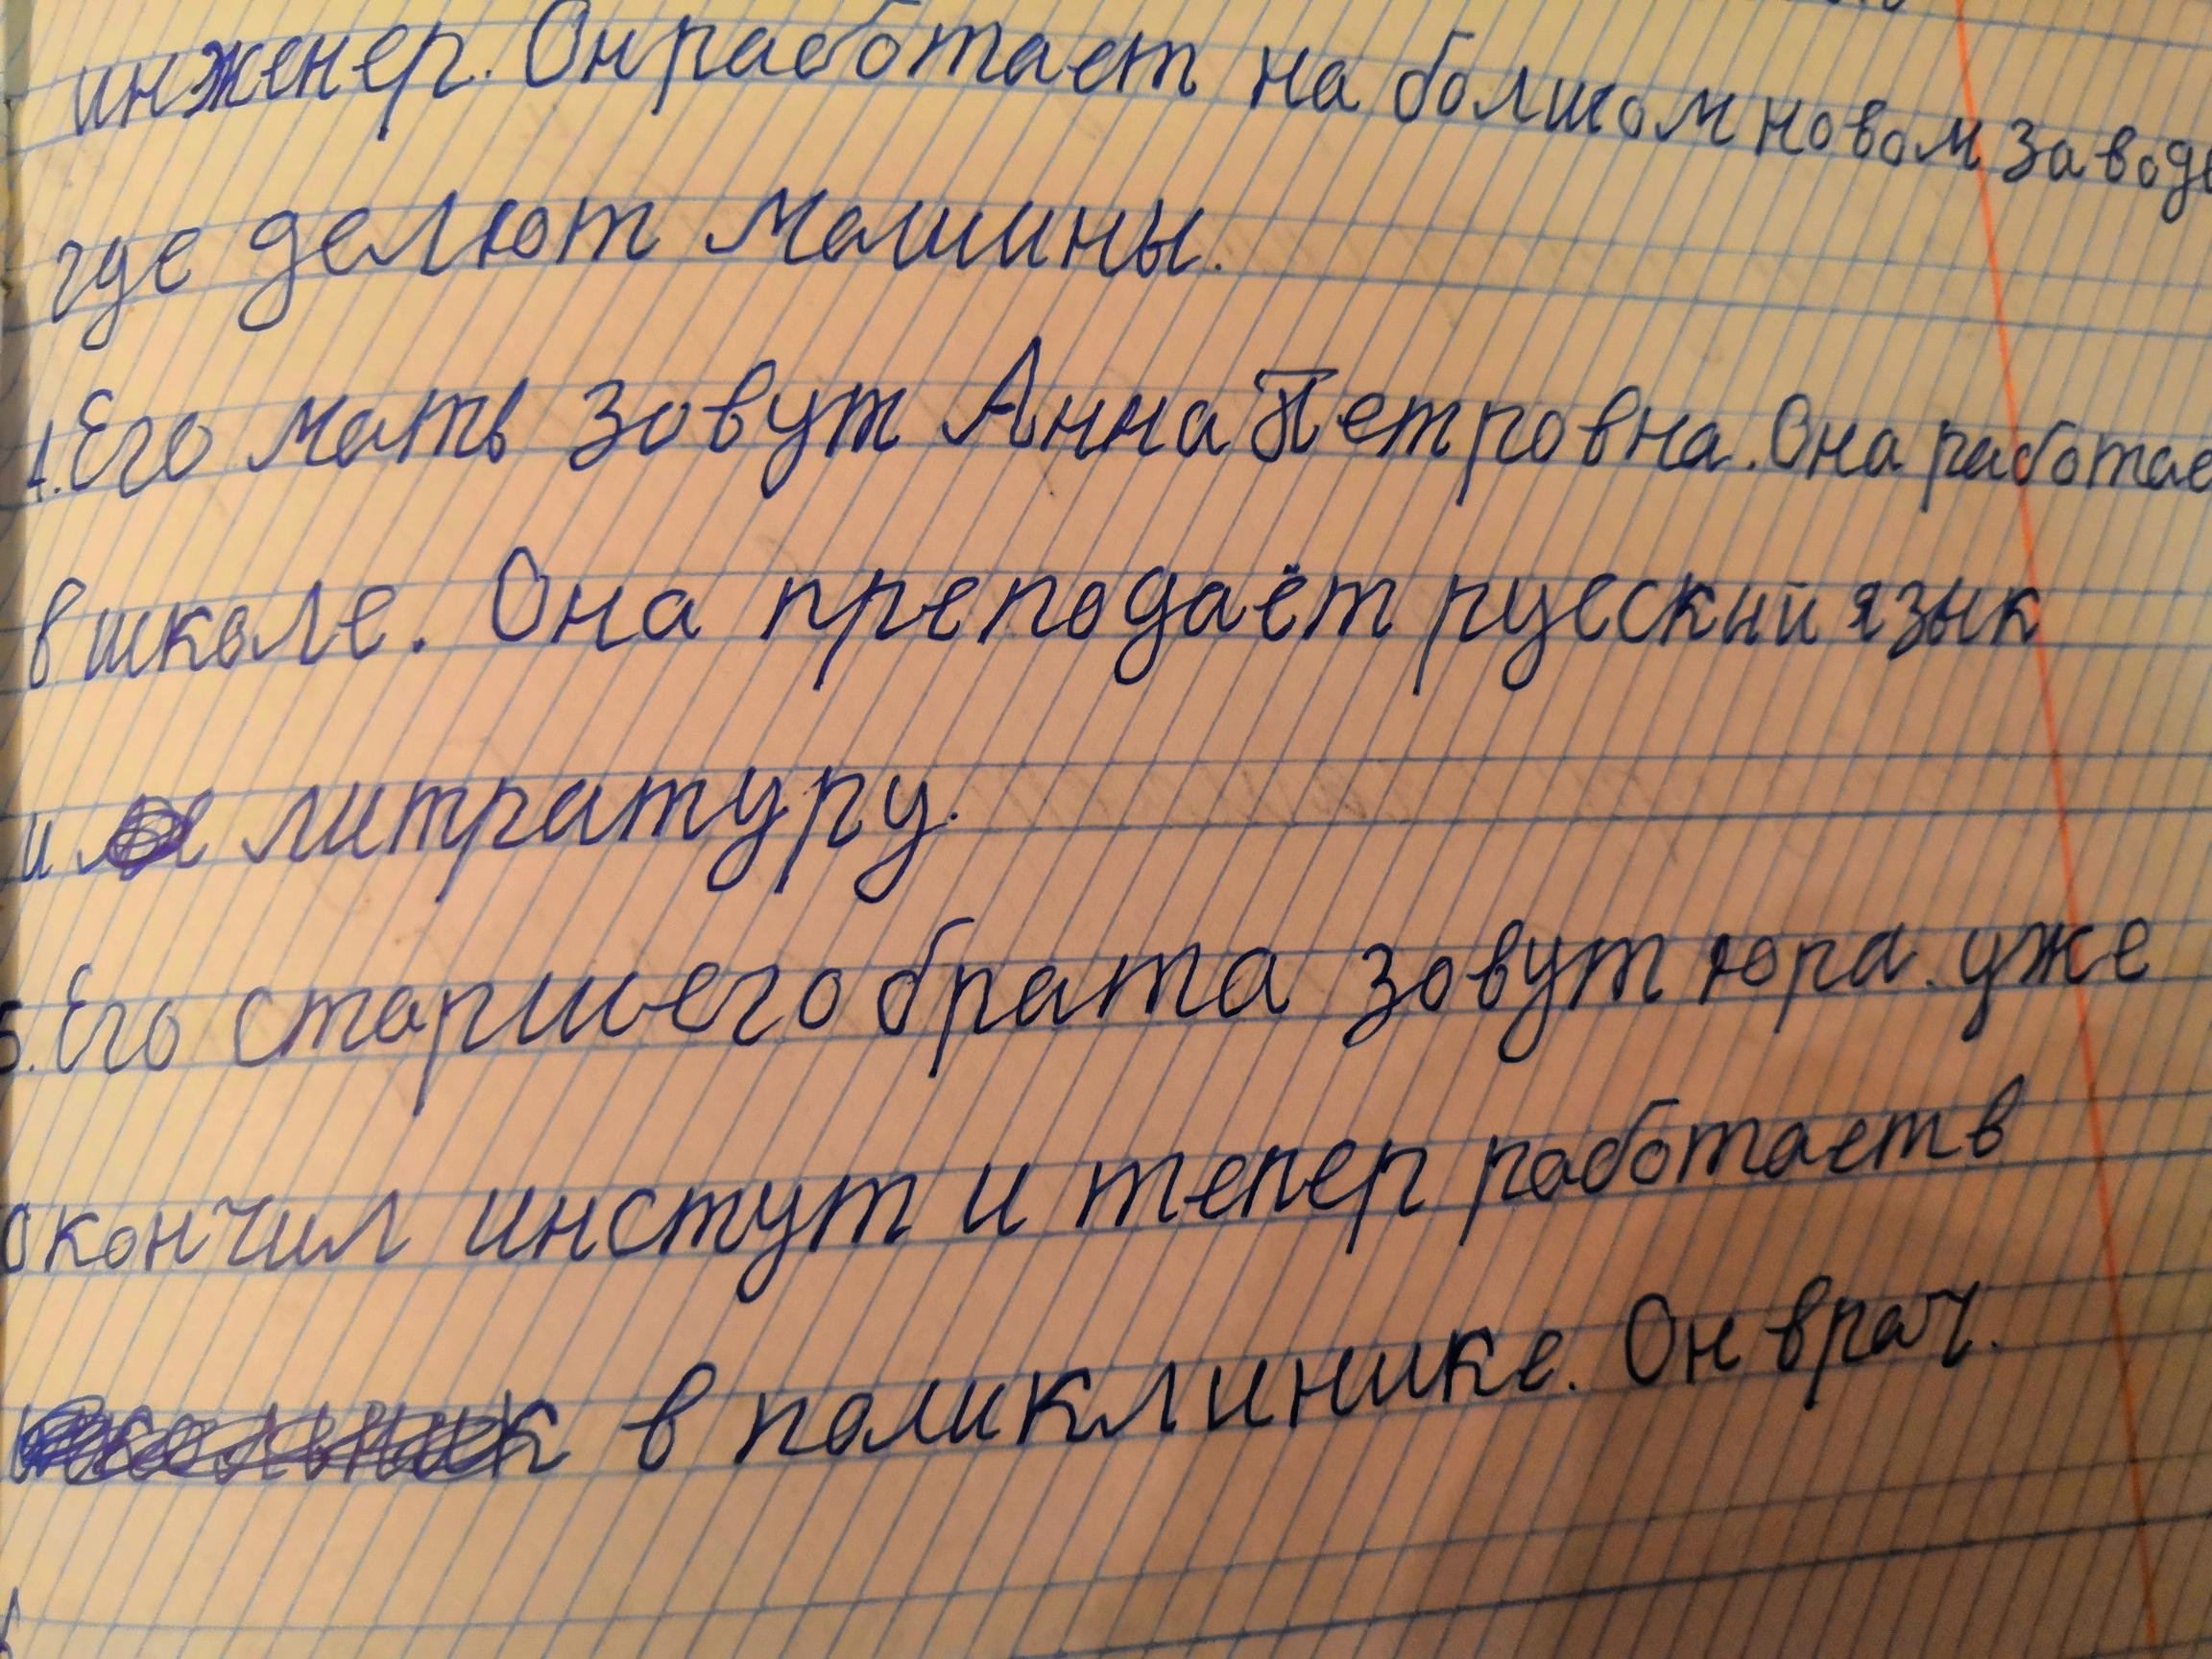 инженер. Он работает на болшом новом заводе
где делют машины.
4. Его мать зовут Анна Петровна. Она работае
в школе. Она преподаёт русский язык
и литратуру.
5. Его старшего брата зовут юра. уже
окончил инстут и тепер работает в
в поликлинике. Он врач.